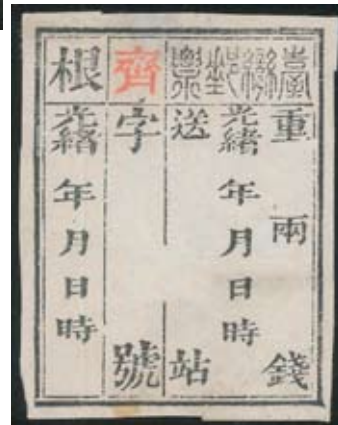 臺灣郵票
重 兩 錢
光緒 年月日時
送 站
齊字 號
根 光緒 年月日時